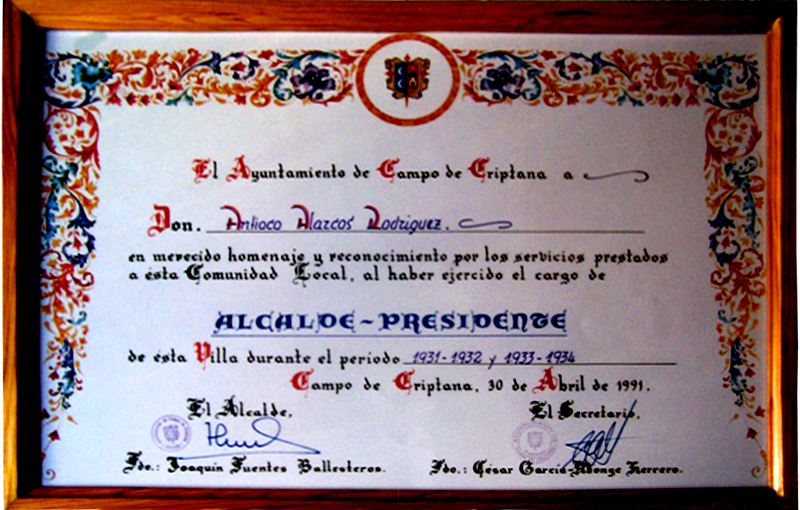 El Ayuntamiento de Campo de Criptana a
Don. Antioco Alarcos Rodriguez.
en merecido homenaje y reconocimiento por los servicios prestados
a ésta Comunidad Local, al haber ejercido el cargo de
ALCALDE-PRESIDENTE
de ésta Villa durante el período 1931-1932 y 1933-1934
Campo de Criptana, 30 de Abril de 1991.
El Alcalde, El Secretario,
Fdo.: Joaquín Fuentes Ballesteros. Fdo.: César García-Monge Herrero.